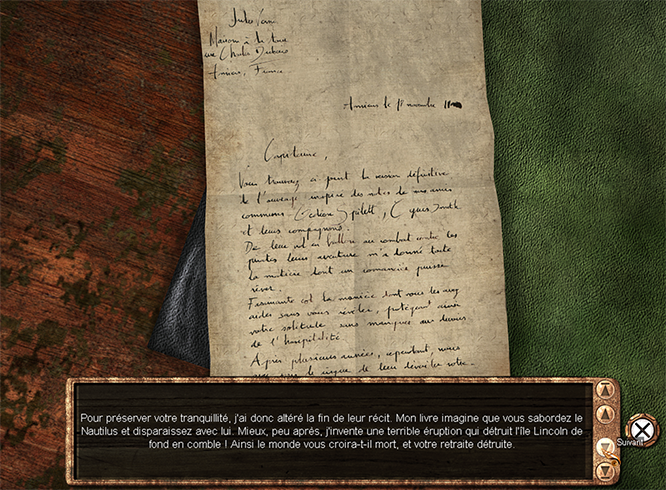 Jules Verne
Maison à la tour
rue Charles Dubois
Amiens, France
Amiens le 18 novembre
Capitaine,
Vous trouverez ci joint la version définitive
de l'ouvrage inspiré des notes de nos amis
communs Gédéon Spilett, Cyrus Smith
et leurs compagnons.
De leur vol en ballon au combat contre les
pirates leur aventure m'a donné toute
la matière dont un romancier puisse
rêver.
Fascinante est la manière dont vous les avez
aidés sans vous révéler, protégeant ainsi
votre solitude sans manquer au devoir
de l'hospitalité.
Après plusieurs années, cependant, nous
Pour préserver votre tranquillité, j'ai donc altéré la fin de leur récit. Mon livre imagine que vous sabordez le
Nautilus et disparaissez avec lui. Mieux, peu aprés, j'invente une terrible éruption qui détruit l'île Lincoln de
fond en comble ! Ainsi le monde vous croira-t-il mort, et votre retraite détruite.
Suivant